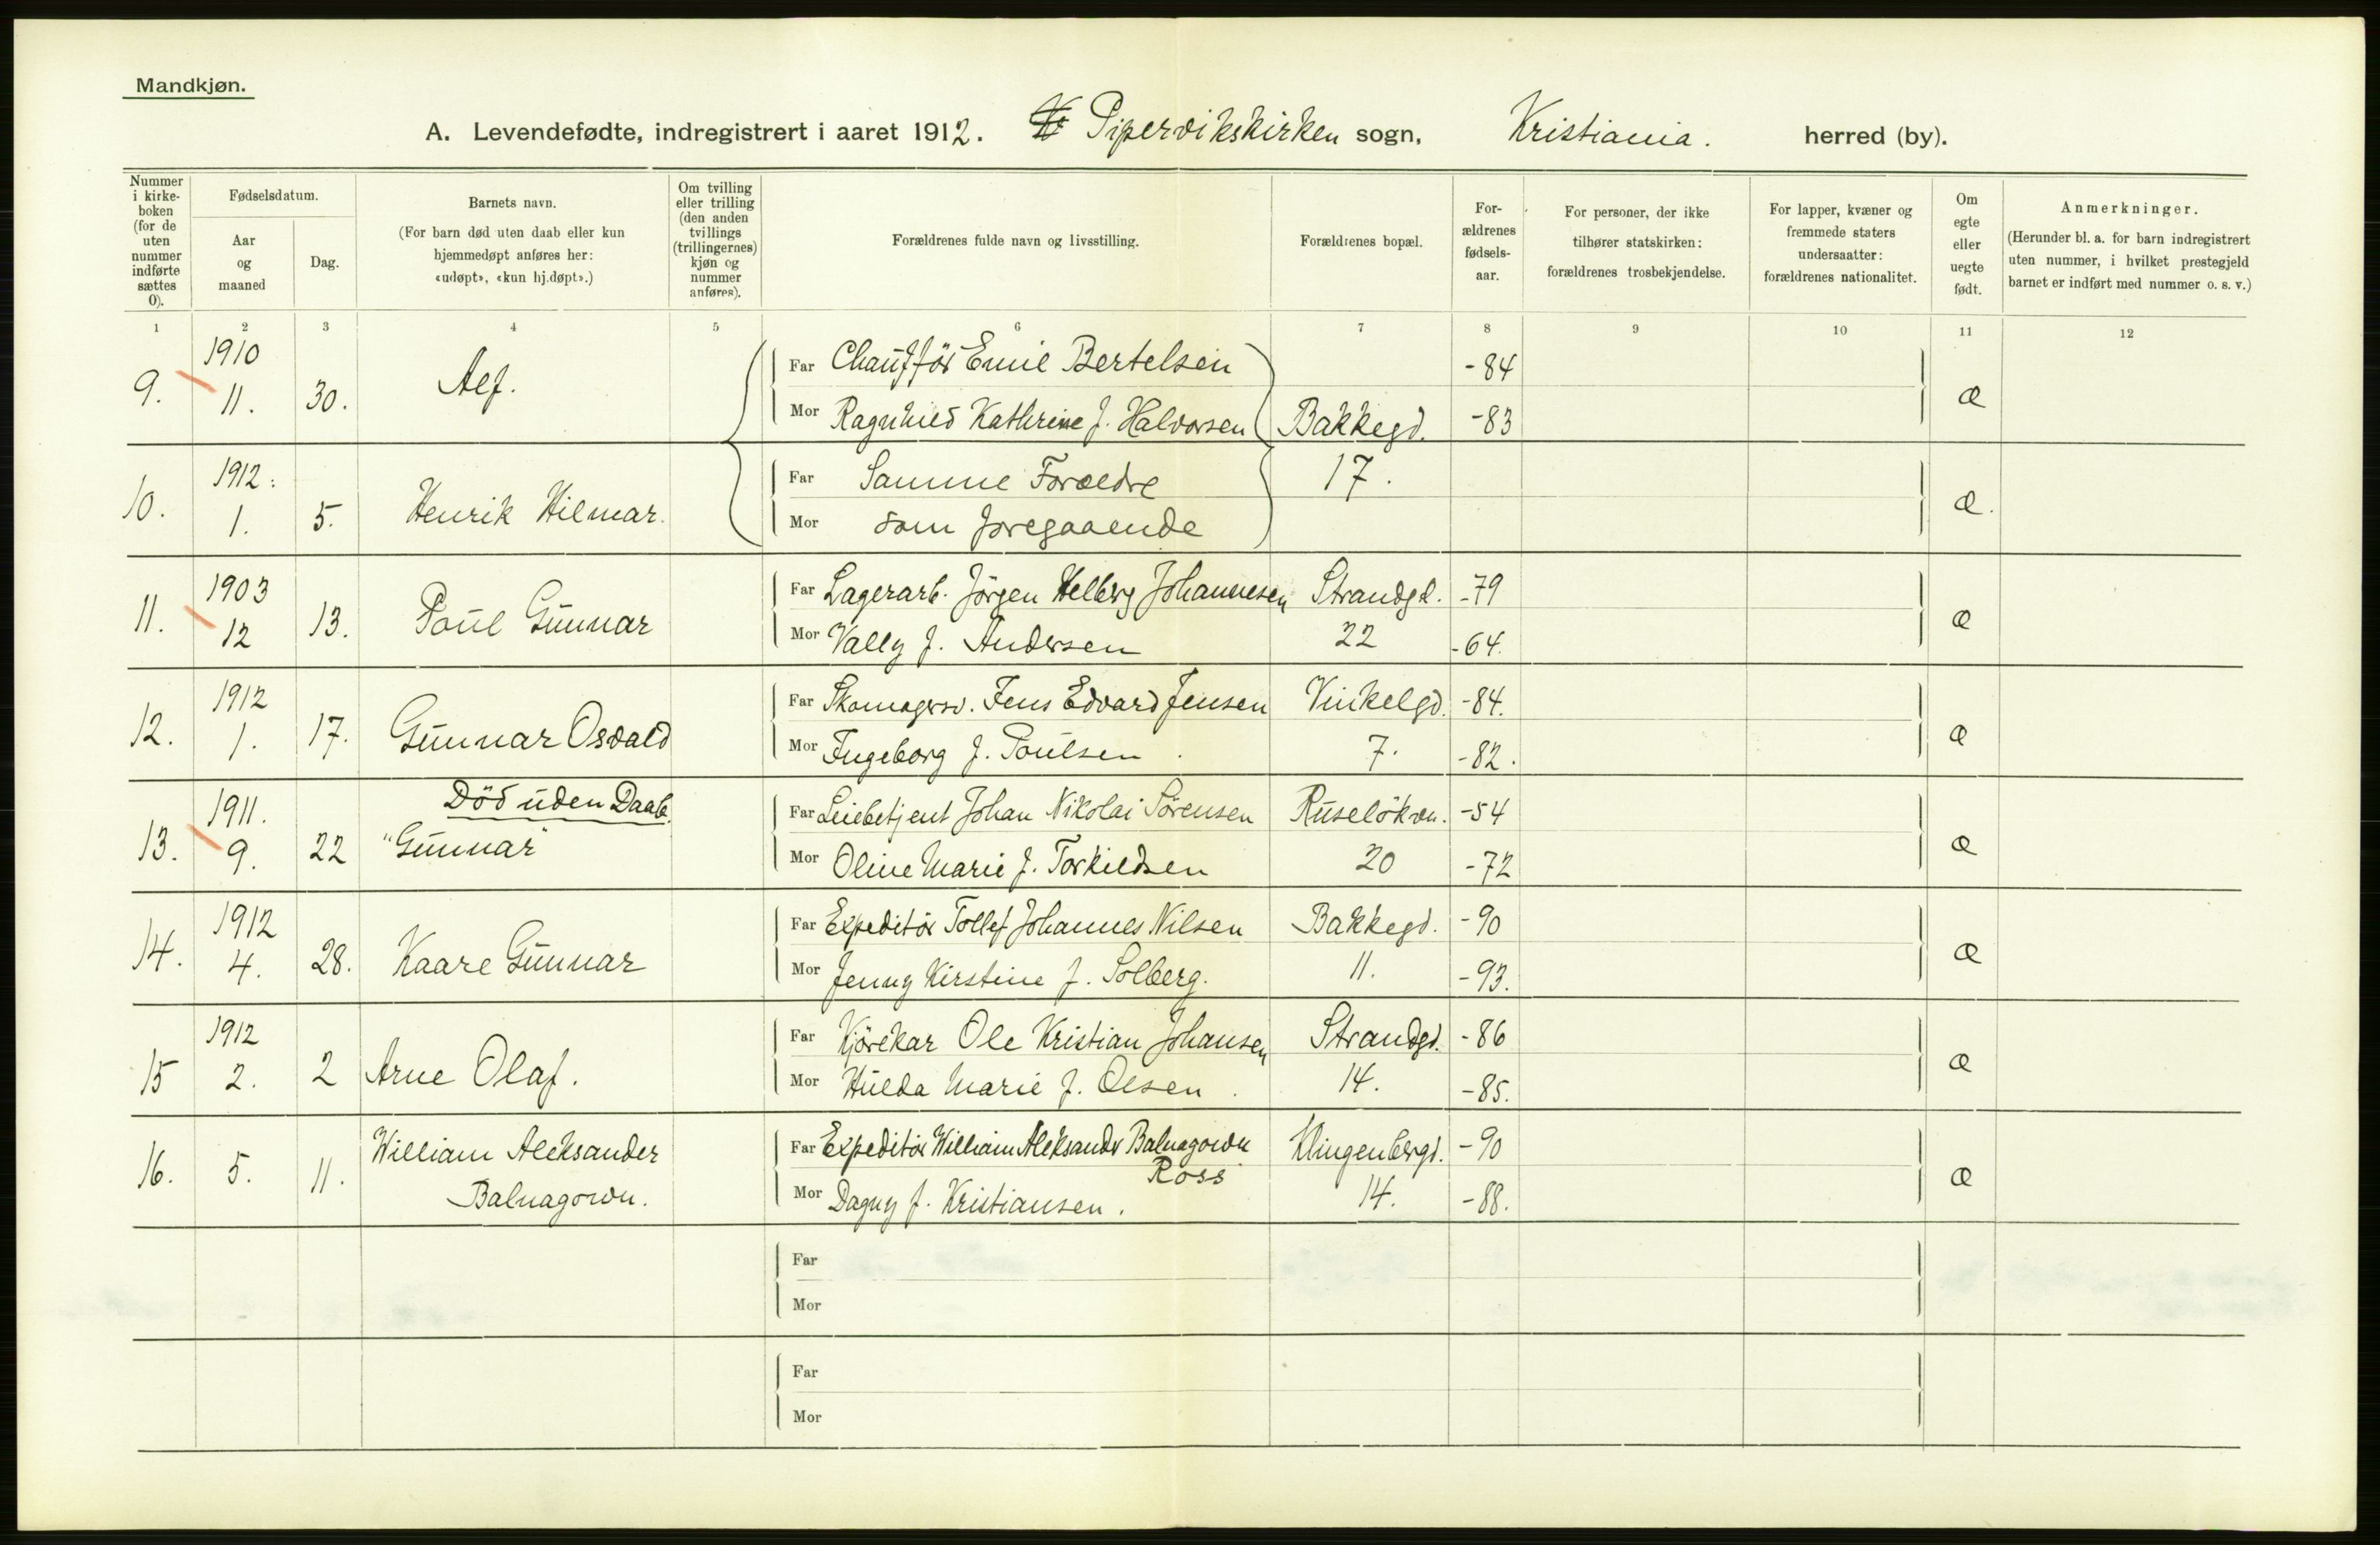 Mandkjøn.
A. Levendefødte, indregistrert i aaret 1912. Pipervikskirken sogn, Kristiania. herred (by).
Nummer i kirke-boken (for de uten nummer indførte sættes 0).
Fødselsdatum.
Aar og maaned
Dag.
Barnets navn.
(For barn død uten daab eller kun hjemmedøpt anføres her: «udøpt», «kun hj.døpt».)
Om tvilling eller trilling (den anden tvillings (trillingernes) kjøn og nummer anføres).
Forældrenes fulde navn og livsstilling.
Forældrenes bopæl.
For-ældrenes fødsels-aar.
For personer, der ikke tilhører statskirken: forældrenes trosbekjendelse.
For lapper, kvæner og fremmede staters undersaatter: forældrenes nationalitet.
Om egte eller uegte født.
Anmerkninger.
(Herunder bl. a. for barn indregistrert uten nummer, i hvilket prestegjeld barnet er indført med nummer o. s. v.)
1 2 3 4 5 6 7 8 9 10 11 12
9. 1910 11. 30. Alf. Far Chaufför Emil Bertelsen -84 æ
Mor Ragnhild Kathrine f. Halvorsen Bakkegd. -83
10. 1912. 1. 5. Henrik Hilmar. Far Samme Foræedre 17. æ.
Mor som foregaaende
11. 1903 12 13. Poul Gunnar Far Lagerarb. Jörgen Helberg Johannesen Strandgd. -79 æ
Mor Vally f. Andersen 22 -64.
12. 1912 1. 17. Gunnar Osvald Far Skomagersv. Jens Edvard Jensen Vinkelgd. -84. æ
Mor Ingeborg f. Poulsen 7. -82.
13. 1911. 9. 22 Död uden Daab. "Gunnar" Far Leiebetjent Johan Nikolai Sörensen Ruselökvn. -54 æ
Mor Oline Marie f. Torkildsen 20 -72
14. 1912 4. 28. Kaare Gunnar Far Expeditör Tollef Johannes Nilsen Bakkegd. -90 æ
Mor Jenny Kirstine f. Solberg. 11. -93.
15 1912 2. 2 Arne Olaf. Far Kjörekar Ole Kristian Johansen Strandgd. -86 æ
Mor Hulda Marie f. Olsen. 14. -85.
16. 5. 11. William Aleksander Balnagown. Far Expeditör William Aleksander Balnagown Ross Klingenbergd. -90 æ
Mor Dagny f. Kristiansen. 14. -88.
Far
Mor
Far
Mor